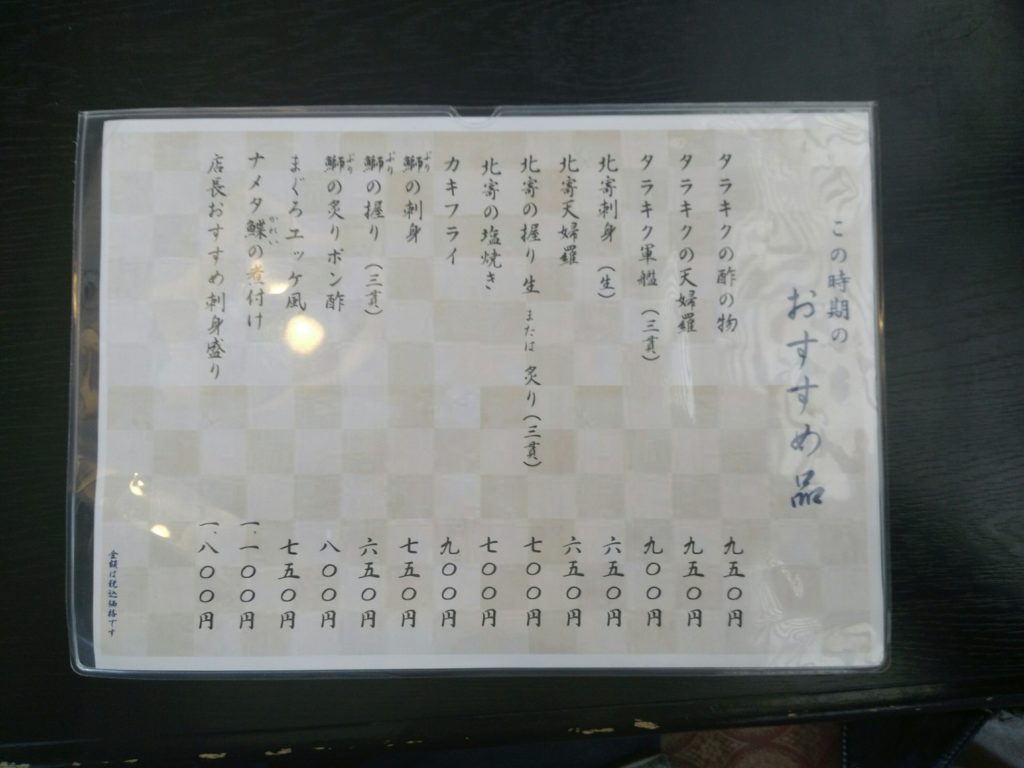 この時期の
おすすめ品
タラキクの酢の物 九五〇円
タラキクの天婦羅 九五〇円
タラキク軍艦（三貫） 九〇〇円
北寄刺身（生） 六五〇円
北寄天婦羅 六五〇円
北寄の握り 生 または 炙り（三貫） 七〇〇円
北寄の塩焼き 七〇〇円
カキフライ 九〇〇円
鰤の刺身 七五〇円
鰤の握り（三貫） 六五〇円
鰤の炙りポン酢 八〇〇円
まぐろユッケ風 七五〇円
ナメタ鰈の煮付け 一、一〇〇円
店長おすすめ刺身盛り 一、八〇〇円
金額は税込価格です